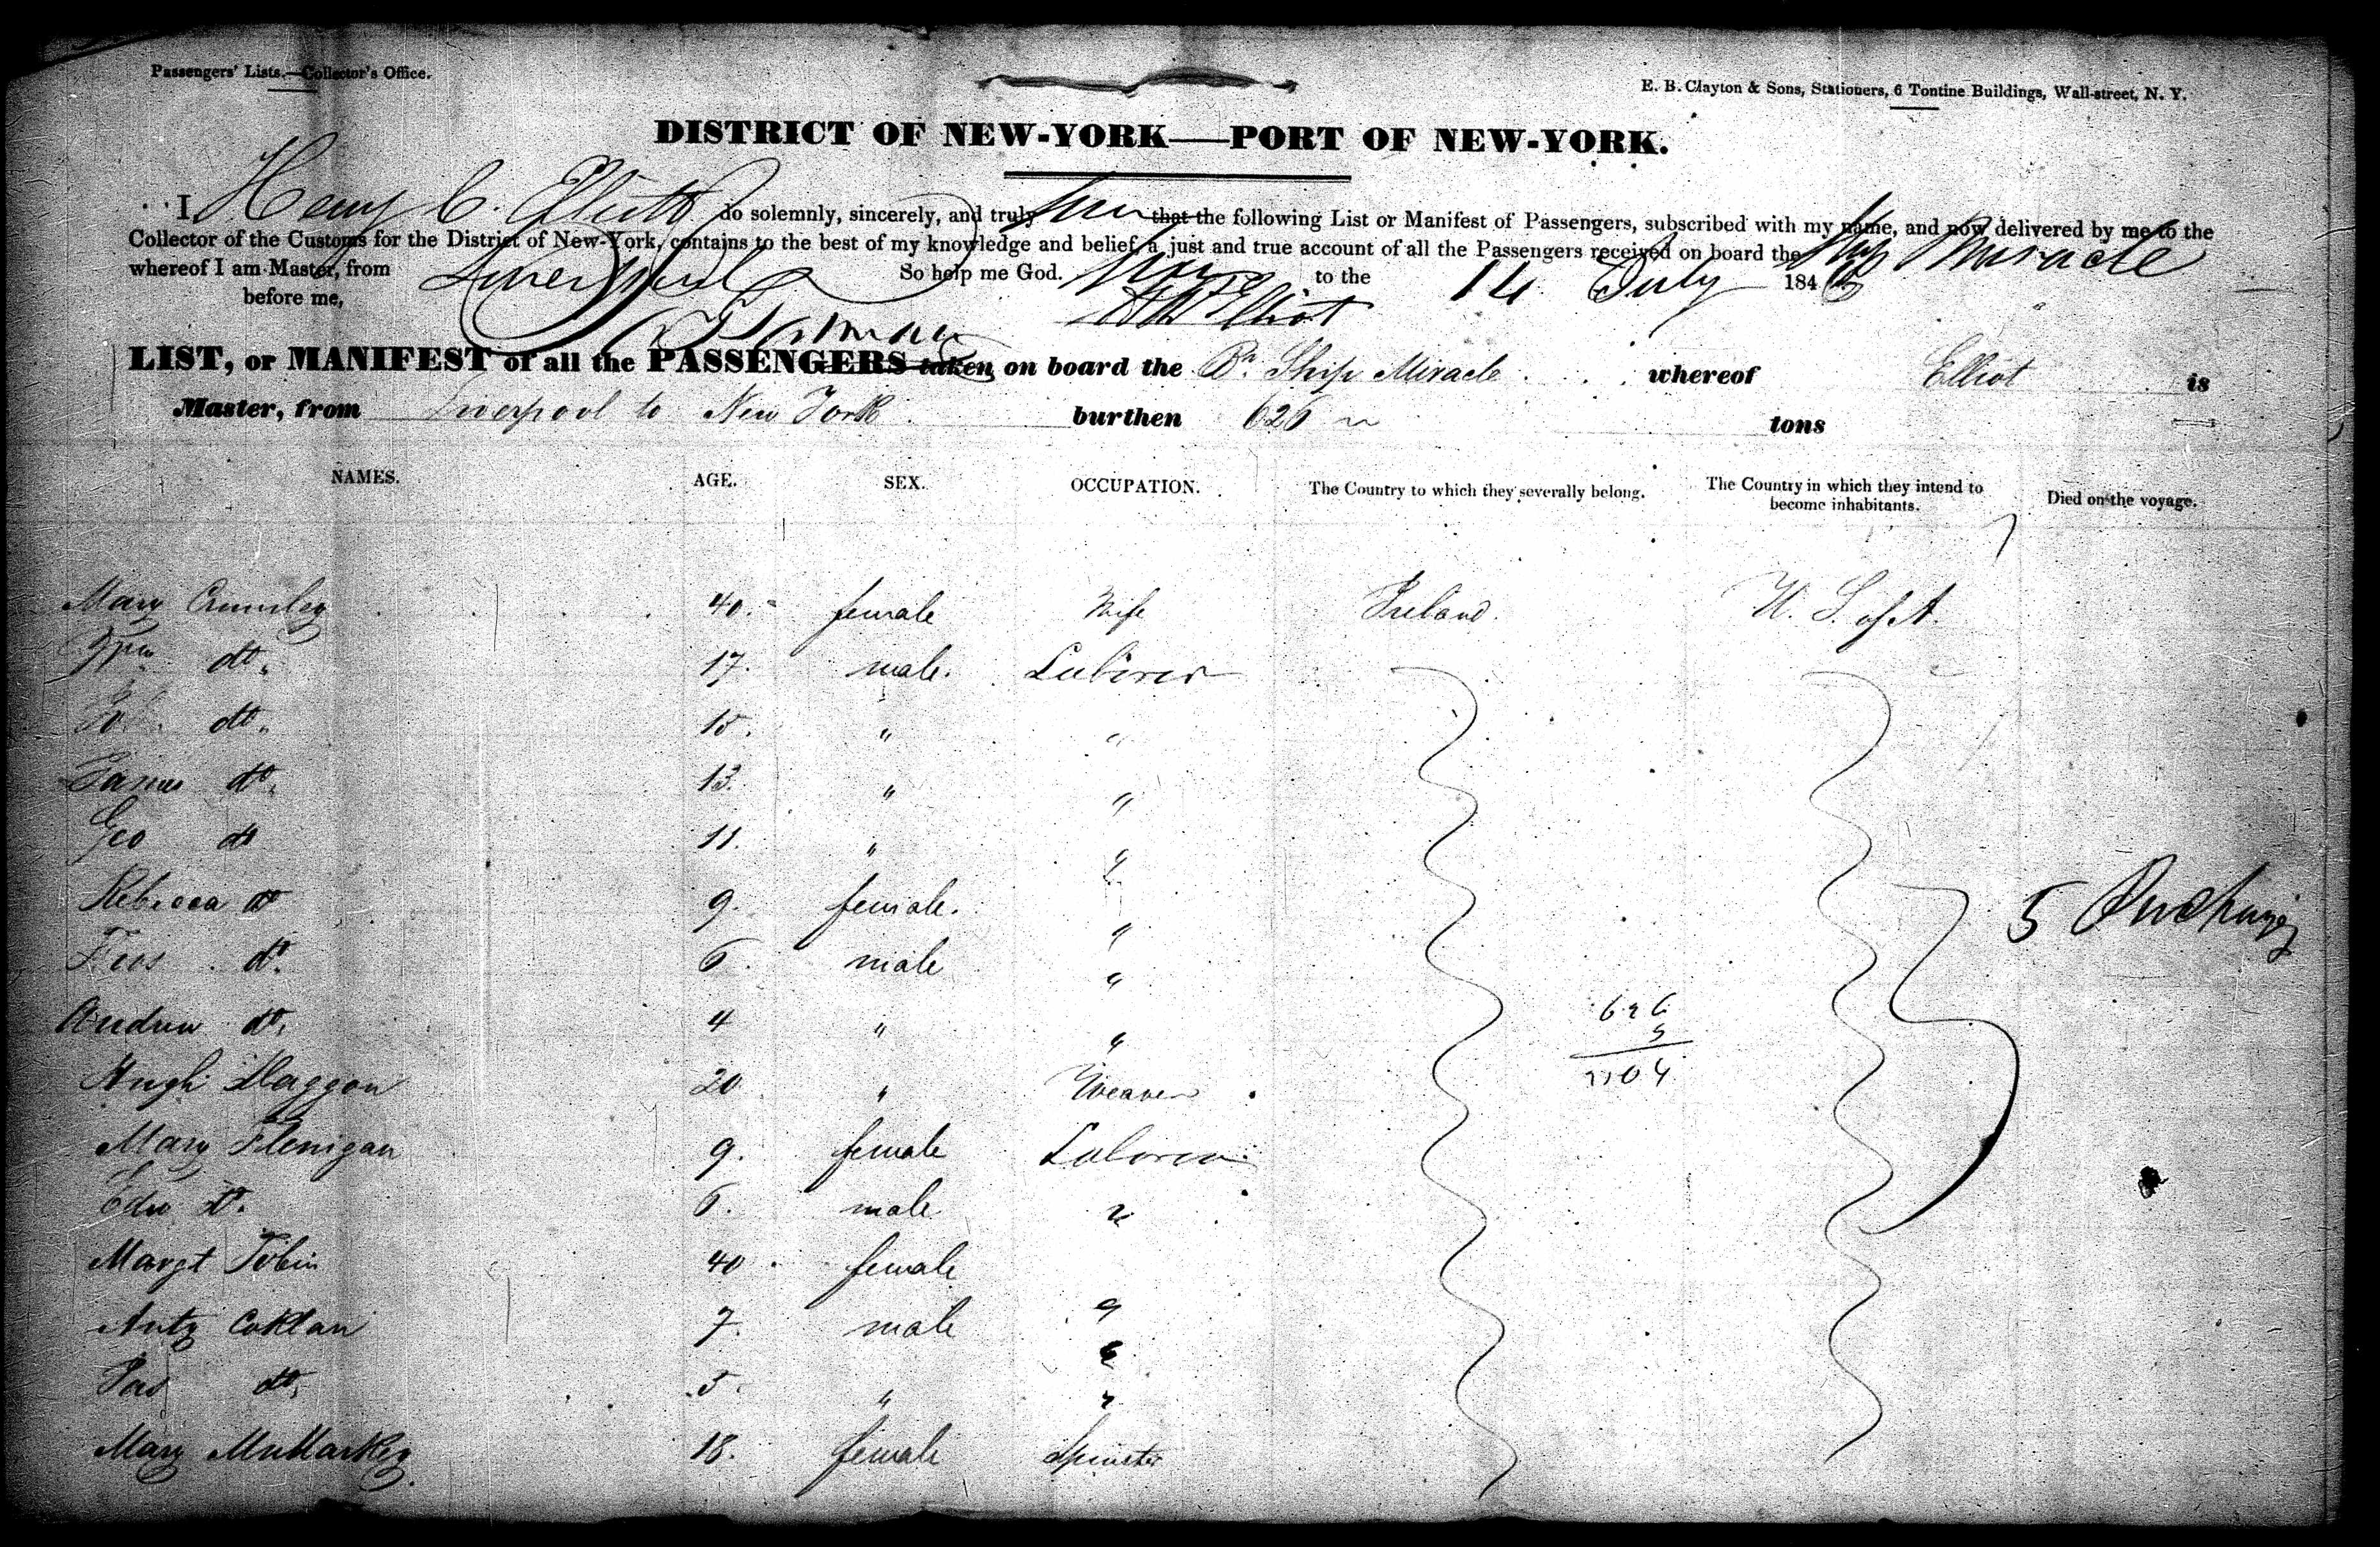 Passengers' Lists.—Collector's Office.
E. B. Clayton & Sons, Stationers, 6 Tontine Buildings, Wall-street, N. Y.
DISTRICT OF NEW-YORK—PORT OF NEW-YORK.
I, Henry C. Elliott do solemnly, sincerely, and truly that the following List or Manifest of Passengers, subscribed with my name, and now delivered by me to the
Collector of the Customs for the District of New-York, contains to the best of my knowledge and belief, a just and true account of all the Passengers received on board the Ship Miracle
whereof I am Master, from Liverpool So help me God. to the 14 July 184
before me, Elliot
LIST, or MANIFEST of all the PASSENGERS taken on board the Br. Ship Miracle whereof Elliot is
Master, from Liverpool to New York burthen 626 tons
NAMES. AGE. SEX. OCCUPATION. The Country to which they severally belong. The Country in which they intend to become inhabitants. Died on the voyage.
Mary Crumley 40. female Wife Ireland. U. S. of A.
Wm do. 17. male. Laborer
do. 15. " "
James do. 13. " "
Geo do 11. " "
Rebecca do 9. female. "
do. 6. male "
Andrew do. 4 " "
Hugh Haggon 20 " Weaver
Mary Flenigan 9. female Laborer
Edw do. 6. male "
Margt Tobin 40 female
Anty Coklan 7. male "
Pat do. 5. " "
Mary Mullarkey 18. female Spinster
5
626
5